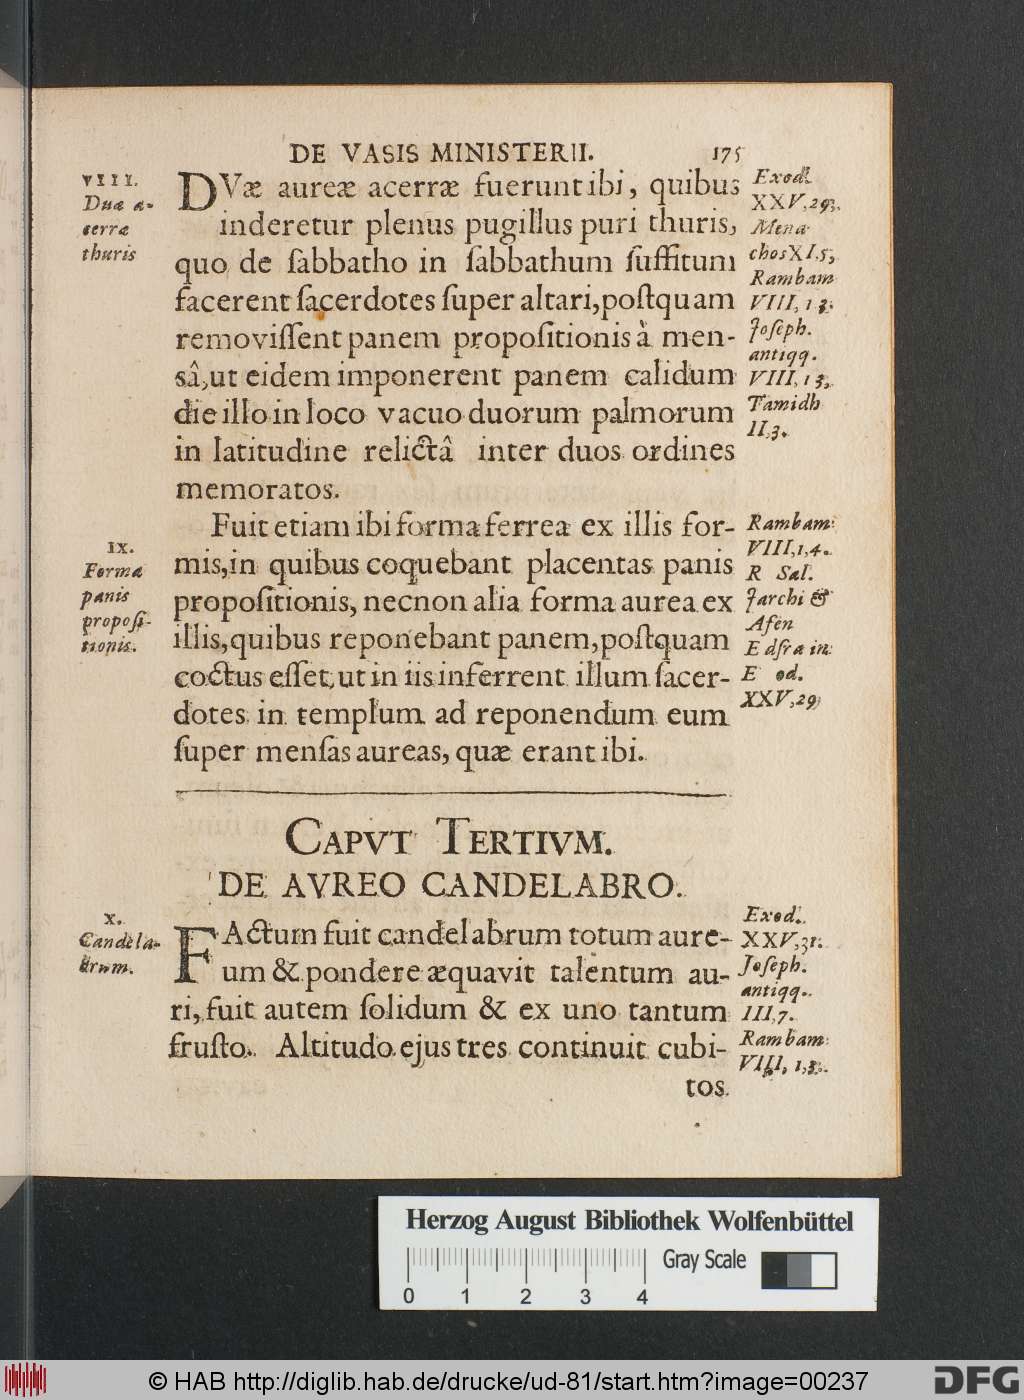 DE VASIS MINISTERII. 175
VIII.
Duæ a-
cerræ
thuris
DVæ aureæ acerræ fuerunt ibi, quibus
inderetur plenus pugillus puri thuris,
quo de ſabbatho in ſabbathum ſuffitum
facerent ſacerdotes ſuper altari, poſtquam
removiſſent panem propoſitionis à men-
sâ, ut eidem imponerent panem calidum
die illo in loco vacuo duorum palmorum
in latitudine relictâ inter duos ordines
memoratos.
Exod.
XXV, 29.
Mena
chos XI, 5,
Rambam
VIII, 13.
Joſeph.
antiqq.
VIII, 13.
Tamidh
II, 3.
IX.
Forma
panis
propoſi-
tionis.
Fuit etiam ibi forma ferrea ex illis for-
mis, in quibus coquebant placentas panis
propoſitionis, necnon alia forma aurea ex
illis, quibus reponebant panem, poſtquam
coctus eſſet, ut in iis inferrent illum ſacer-
dotes in templum ad reponendum eum
ſuper menſas aureas, quæ erant ibi.
Rambam
VIII, 1, 4.
R Sal.
Jarchi &
Afen
Edſra in
Exod.
XXV, 29
CAPVT TERTIVM.
DE AVREO CANDELABRO.
X.
Candela-
brum.
FActum fuit candelabrum totum aure-
um & pondere æquavit talentum au-
ri, fuit autem ſolidum & ex uno tantum
fruſto. Altitudo ejus tres continuit cubi-
tos
Exod.
XXV, 31.
Joſeph.
antiqq.
III, 7.
Rambam
VIII, 1, 3.
Herzog August Bibliothek Wolfenbüttel
Gray Scale
0 1 2 3 4
© HAB http://diglib.hab.de/drucke/ud-81/start.htm?image=00237
DFG